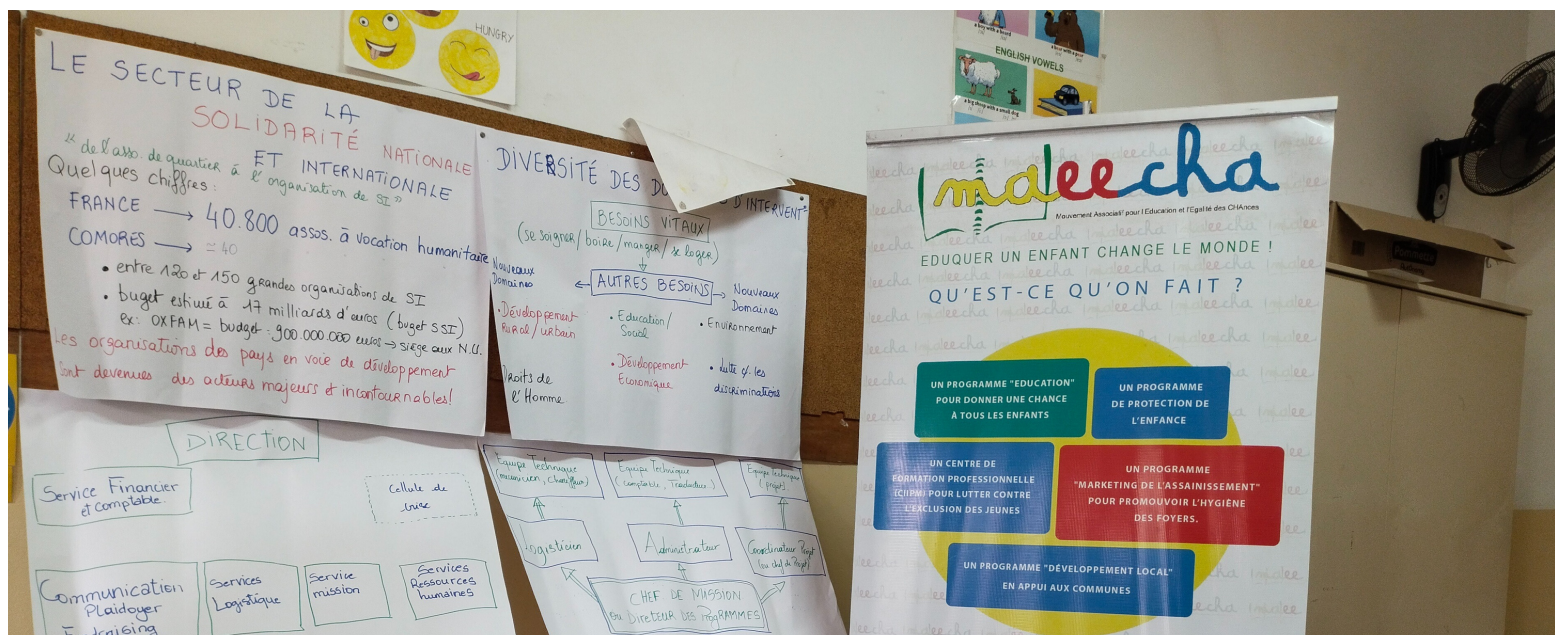 HUNGRY
LE SECTEUR DE LA
SOLIDARITÉ NATIONALE
ET INTERNATIONALE
" de l'asso. de quartier à l'organisation de SI "
Quelques chiffres :
FRANCE → 40.800 assos. à vocation humanitaire
COMORES → ≃ 40
• entre 120 et 150 grandes organisations de SI
• buget estimé à 17 milliards d'euros (buget SSI)
ex: OXFAM = budget : 900.000.000 euros → siège aux N.U.
Les organisations des pays en voie de développement
sont devenues des acteurs majeurs et incontournables!
DIVERSITÉ DES
D'INTERVENT°
BESOINS VITAUX
(se soigner / boire / manger / se loger)
AUTRES BESOINS
Nouveaux
Domaines
• Développement
Rural / urbain
Droits de
l'Homme
• Education /
Social
• Développement
Economique
Nouveaux
Domaines
• Environnement
• Lutte c/. les
discriminations
DIRECTION
Service Financier
et comptable.
Cellule de
crise
Communication
Plaidoyer
Services
Logistique
Service
mission
Services
Ressources
humaines
Equipe Technique
(mecanicien, chauffeur)
Equipe Technique
(comptable, Traducteur..)
Equipe Technique
(projet)
Logisticien
Administrateur
Coordinateur Projet
(ou chef de Projet)
CHEF DE MISSION
ou Direteur DES PROGRAMMES
a boy with a beard
a bear with a pear
ENGLISH VOWELS
a big sheep with a small dog
maleecha
Mouvement Associatif pour l'Education et l'Egalité des CHAnces
EDUQUER UN ENFANT CHANGE LE MONDE !
QU'EST-CE QU'ON FAIT ?
UN PROGRAMME "EDUCATION"
POUR DONNER UNE CHANCE
À TOUS LES ENFANTS
UN PROGRAMME
DE PROTECTION DE
L'ENFANCE
UN CENTRE DE
FORMATION PROFESSIONNELLE
(CIIPM) POUR LUTTER CONTRE
L'EXCLUSION DES JEUNES
UN PROGRAMME
"MARKETING DE L'ASSAINISSEMENT"
POUR PROMOUVOIR L'HYGIÈNE
DES FOYERS.
UN PROGRAMME "DÉVELOPPEMENT LOCAL"
EN APPUI AUX COMMUNES